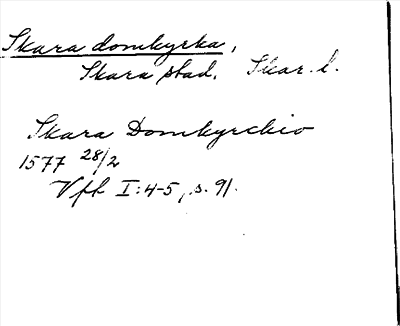 Skara domkyrka,
Skara stad. Skar. l.
Skara Domkyrckio
1577 28/2
Vfk I:4-5, s. 91.